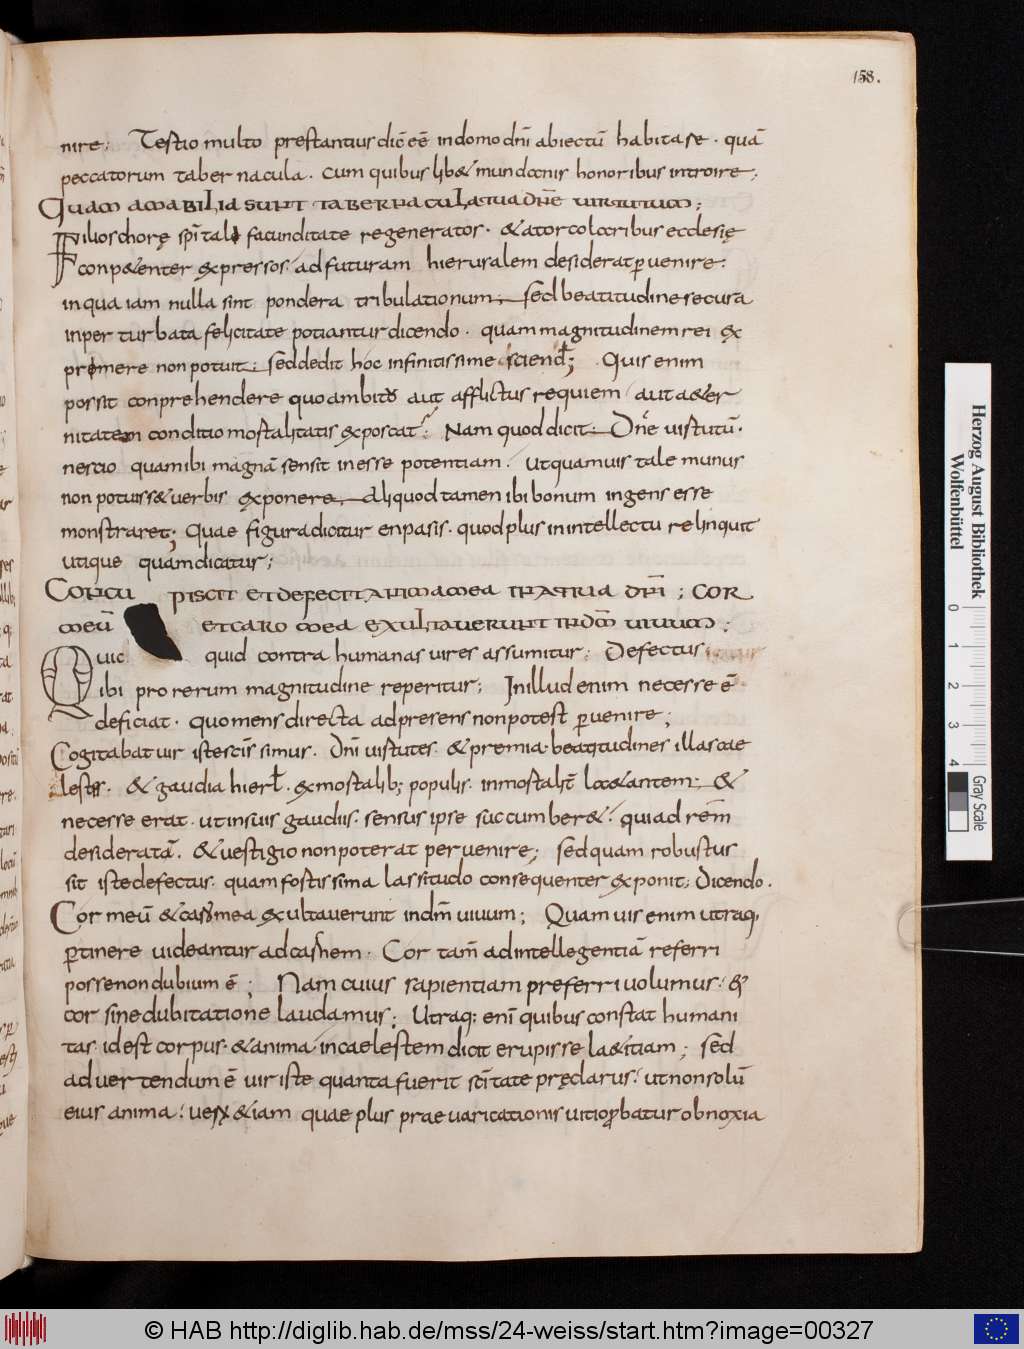 158.
nire; Testio multo prestantius dic̄ eē in domo dn̄i abiectū habitare · quā
peccatorum tabernacula · cum quibus lib& mundanis honoribus introire;
QUAM AMABILIA SUNT TABERNACULA TUA DN̄E VIRTUTUM;
Filios chorę sp̄itali facunditate regenerator · & a torcolaribus ecclesię
conp&enter expressos · ad futuram hierusalem desiderat ꝑuenire ·
in qua iam nulla sint pondera tribulationum; sed beatitudine secura
inperturbata felicitate potiantur dicendo · quam magnitudinem rei ex
primere non potuit; sed dedit hoc infinitissime sciend;
Quis enim
possit conprehendere quo ambitus aut afflictus requiem aut a&er
nitatem conditio mortalitatis exposcat; Nam quod dicit; Dn̄e uirtutū ·
nescio quam ibi magnā sensit inesse potentiam · ut quamuis tale munus
non potuiss& uerbis exponere, aliquod tamen ibi bonum ingens esse
monstraret; Quae figura dicitur enpasis · quod plus in intellectu relinquit
utique quam dicatur;
CONCU PISCIT ET DEFECIT ANIMA MEA IN ATRIA DN̄I; COR
MEŪ ET CARO MEA EXULTAVERUNT IN DM̄ VIVUM;
Quic quid contra humanas uires assumitur; Defectus
ibi pro rerum magnitudine reperitur; In illud enim necesse ē
deficiat · quo mens directa ad presens non potest ꝑuenire;
Cogitabat uir iste sc̄issimus · Dn̄i uirtutes · & premia beatitudines illas cae
lestes · & gaudia hierł · ex mortalib; populis · inmortalit̄ laetantem; &
necesse erat · ut in suis gaudiis · sensus ipse succumber& · quia ad rēm
desideratā · & uestigio non poterat peruenire; sed quam robustus
sit iste defectus · quam fortissima lassitudo consequenter exponit; Dicendo ·
Cor meū & caro mea exultauerunt in dm̄ uiuum; Quamuis enim utraq;
ꝑtinere uideantur ad carnem · Cor tam̄ ad intellegentiā referri
posse non dubium ē; Nam cuius sapientiam preferri uolumus · &
cor sine dubitatione laudamus; Utraq; enī quibus constat humani
tas · id est corpus · & anima · in caelestem dicit erupisse la&itiam; sed
aduertendum ē uir iste quanta fuerit sc̄itate pręclarus · ut non solū
eius anima · uerū &iam quae plus praeuaricationis uitio ꝓbatur obnoxia
Herzog August Bibliothek
Wolfenbüttel
0 1 2 3 4
Gray Scale
© HAB http://diglib.hab.de/mss/24-weiss/start.htm?image=00327